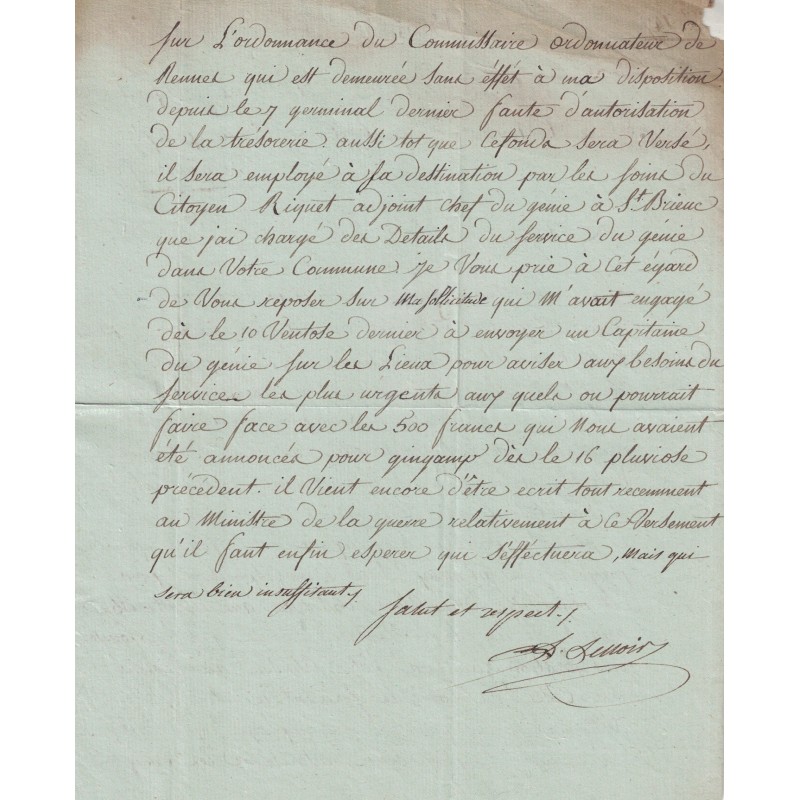 sur L'ordonnance du Commissaire ordonnateur de
Rennes qui est demeurée sans éffét à ma disposition
depuis le 7 germinal dernier faute d'autorisation
de la trésorerie. aussi tot que ce fonds sera Versé,
il sera employé à sa destination par les soins du
Citoyen Riquet adjoint chef du génie à St. Brieuc
que jai chargé des Details du service du génie
dans Votre Commune. Je Vous prie à cet égard
de Vous reposer sur ma sollicitude qui m'avait engagé
dès le 10 Ventose dernier à envoyer un Capitaine
du génie sur les Lieux pour aviser aux besoins du
service les plus urgents aux quels on pourrait
faire face avec les 500 francs qui nous avaient
été annoncés pour gingamp dès le 16 pluviose
précédent. il Vient encore d'être ecrit tout recemment
au Ministre de la guerre relativement à ce Versement
qu'il faut enfin esperer qui s'éfféctuera, mais qui
sera bien insuffisant./.
salut et respect./.
Lenoir